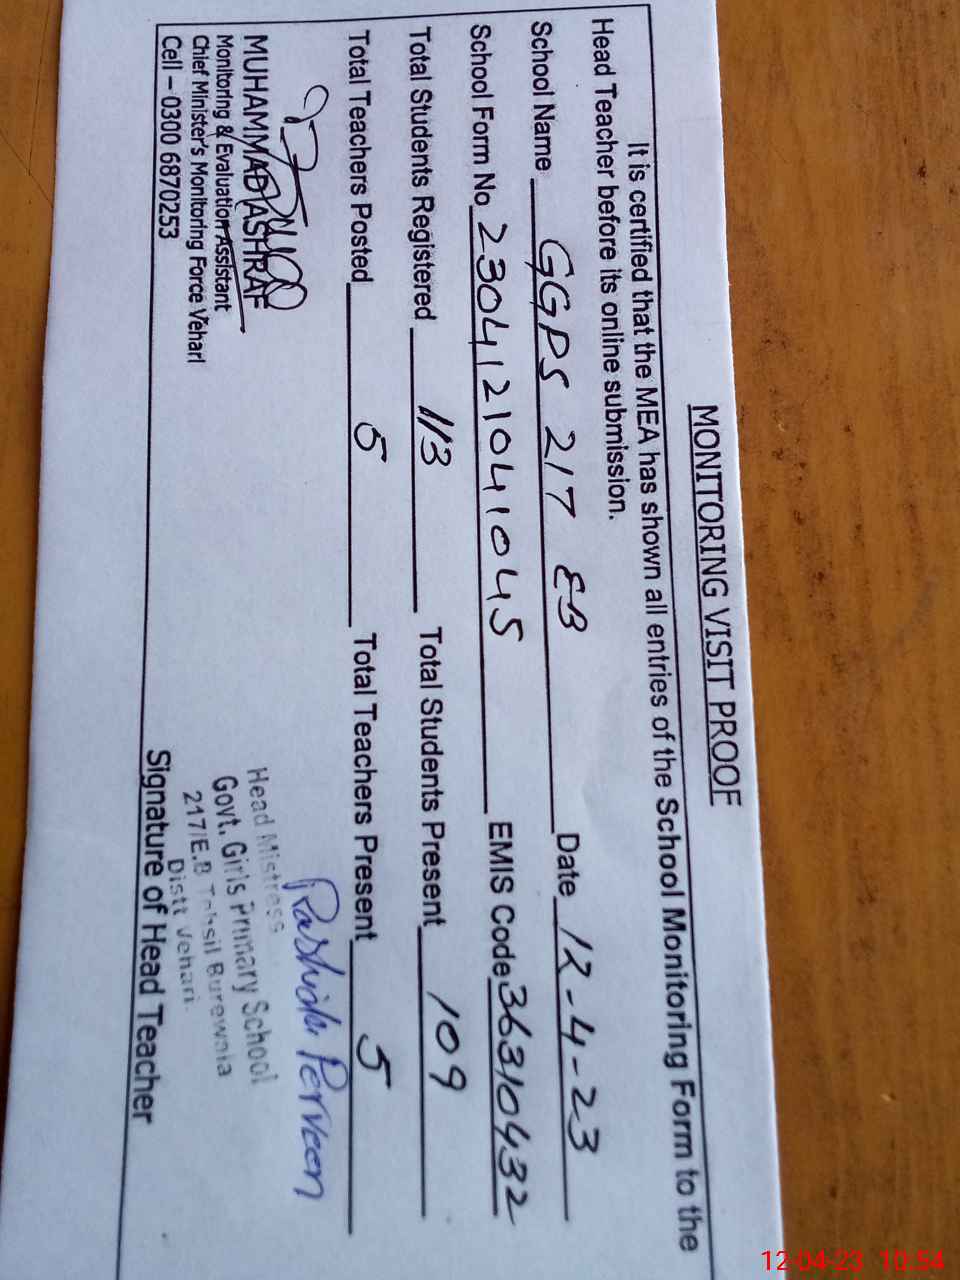 MONITORING VISIT PROOF
It is certified that the MEA has shown all entries of the School Monitoring Form to the
Head Teacher before its online submission.
School Name GGPS 217 EB Date 12-4-23
School Form No 2304121041045 EMIS Code 36310432
Total Students Registered 113 Total Students Present 109
Total Teachers Posted 5 Total Teachers Present 5
Rashida Perveen
MUHAMMAD ASHRAF
Monitoring & Evaluation Assistant
Chief Minister's Monitoring Force Vehari
Cell – 0300 6870253
Head Mistress
Govt. Girls Primary School
217/E.B Tehsil Burewala
Distt Vehari.
Signature of Head Teacher
12-04-23 10:54